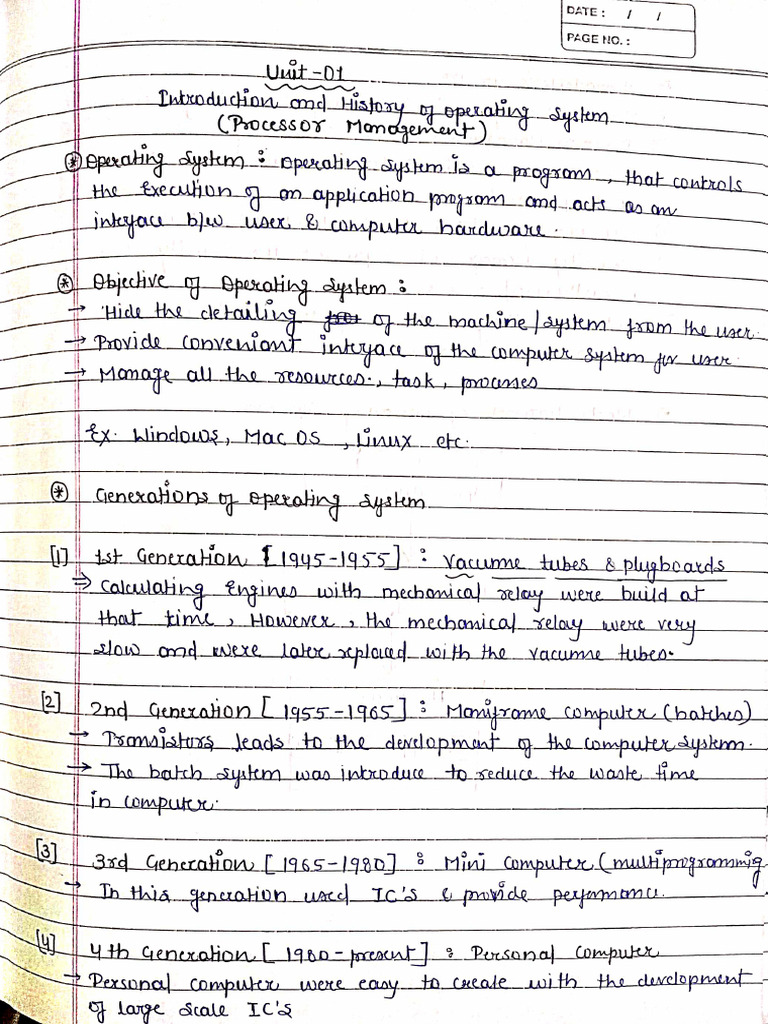 DATE : / /
PAGE NO. :
Unit-01
Introduction and History of operating System
(Processor Management)
* Operating System : Operating System is a program, that controls
the Execution of an application program and acts as an
interface b/w user & computer hardware.
* Objective of Operating System :
→ Hide the detailing of the machine/system from the user.
→ Provide conveniant interface of the computer system for user.
→ Manage all the resources., task, processes
Ex. Windows, Mac OS, Linux etc.
* Generations of Operating System
[1] 1st Generation [1945-1955] : Vacumme tubes & plugboards
⇒ Calculating Engines with mechanical relay were build at
that time, However, the mechanical relay were very
slow and were later replaced with the vacumme tubes.
[2] 2nd Generation [1955-1965] : Mainframe computer (batches)
→ Transistors leads to the development of the computer system.
→ The batch system was introduce to reduce the waste time
in computer.
[3] 3rd Generation [1965-1980] : Mini Computer (multiprogramming
→ In this generation used IC's & provide performance.
[4] 4th Generation [1980-present] : Personal Computer
→ Personal computer were easy to create with the development
of large scale IC's